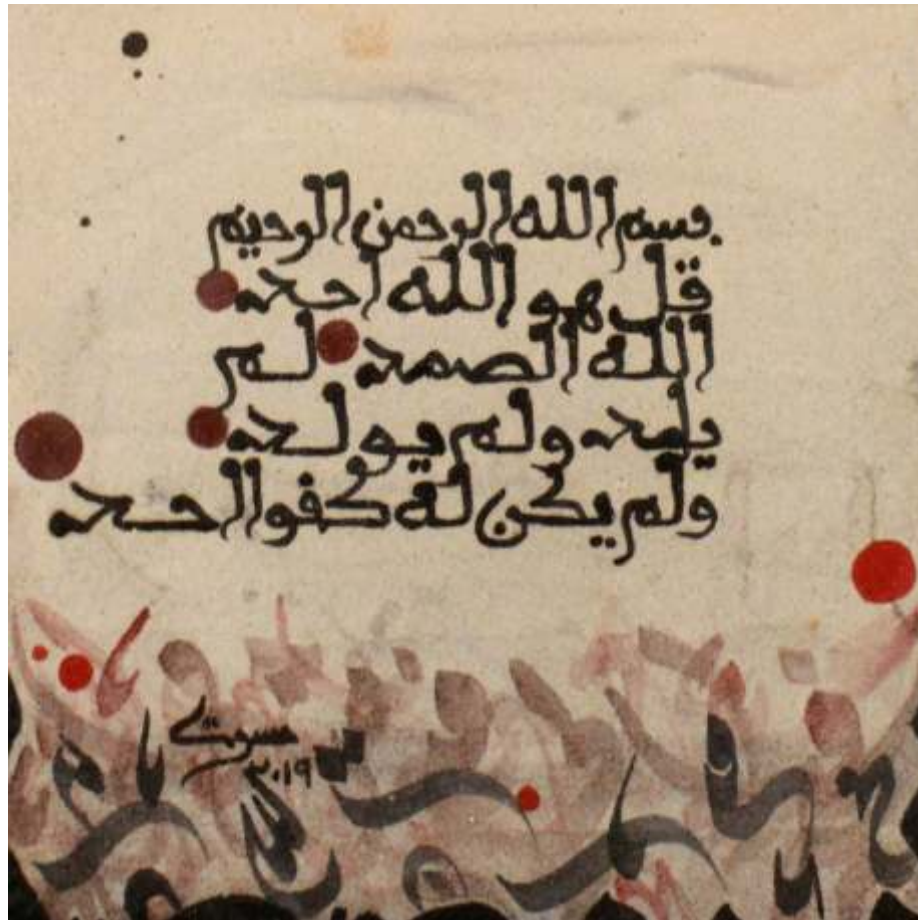 بسم الله الرحمن الرحيم
قل هو الله احد
الله الصمد لم
يلد ولم يولد
ولم يكن له كفوا احد
٢٠١٩